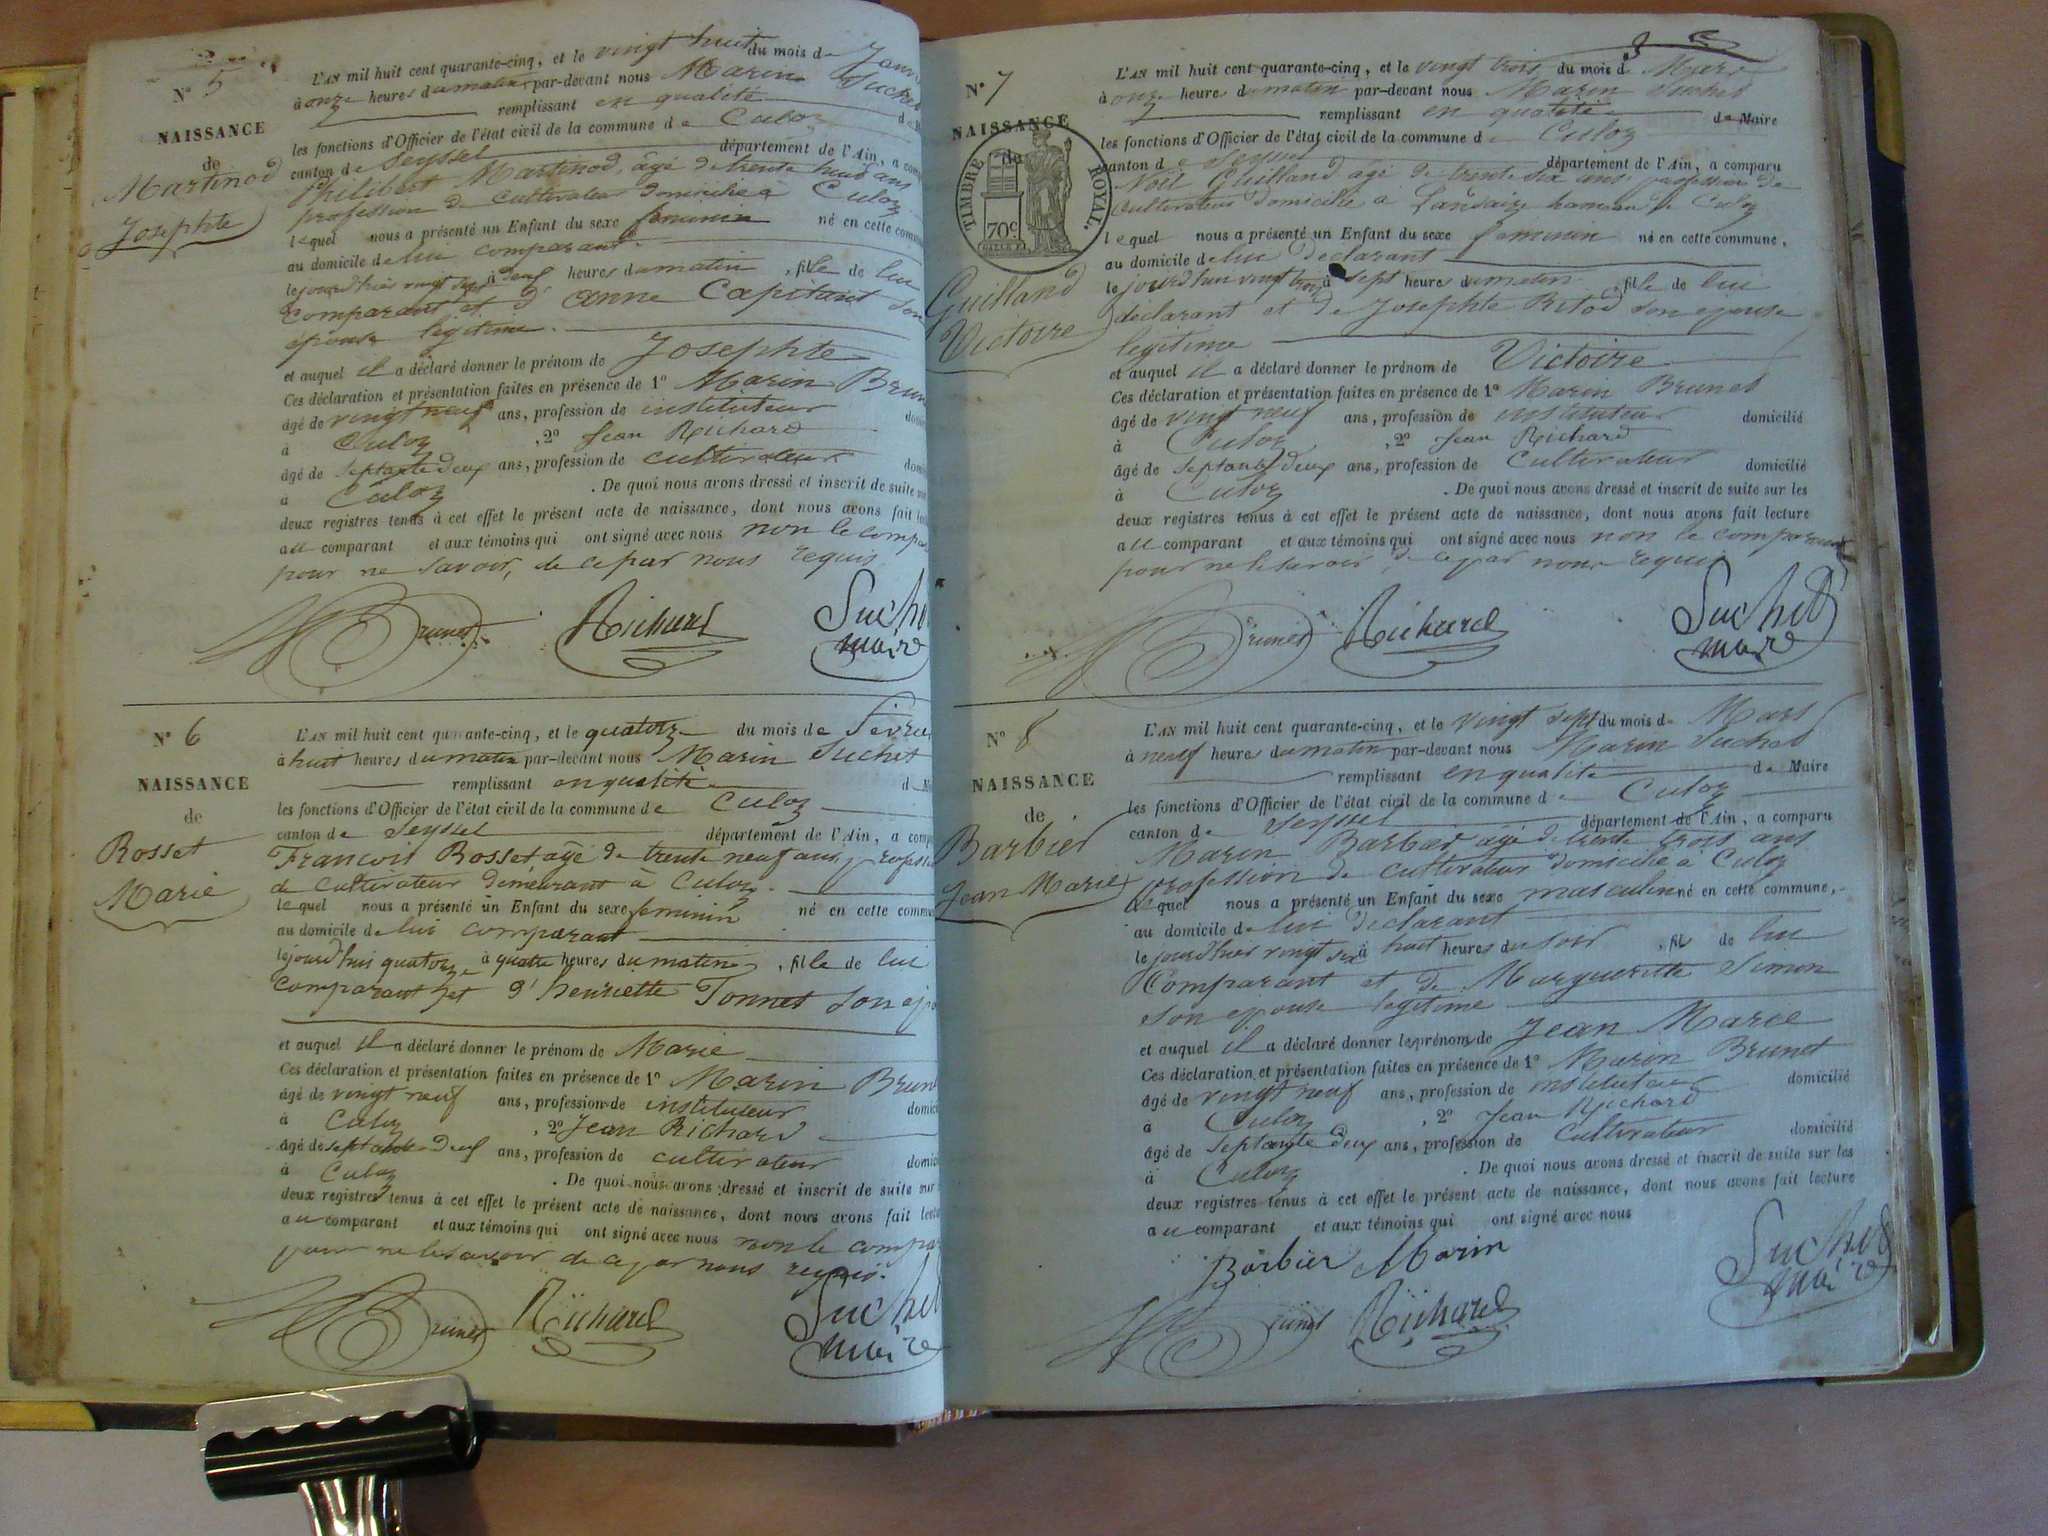 N° 5
NAISSANCE
de
Martinod
Josephte
L'AN mil huit cent quarante-cinq, et le vingt huit du mois de
à onze heures du matin par-devant nous Marin Suchet
remplissant en qualité
les fonctions d'Officier de l'état civil de la commune de Culoz
canton de Seyssel département de l'Ain, a
Philibert Martinod, âgé de trente huit ans
profession de cultivateur domicilié à Culoz
lequel nous a présenté un Enfant du sexe féminin né en cette
au domicile de lui comparant
le jourd'hier vingt sept à neuf heures du matin, fille de lui
comparant et d'Anne Capitant son
épouse légitime.
et auquel il a déclaré donner le prénom de Josephte
Ces déclaration et présentation faites en présence de 1° Marin
âgé de vingt neuf ans, profession de instituteur
à Culoz, 2° Jean Richard
âgé de septante deux ans, profession de cultivateur
à Culoz. De quoi nous avons dressé et inscrit de suite
deux registres tenus à cet effet le présent acte de naissance, dont nous avons fait
au comparant et aux témoins qui ont signé avec nous non le
pour ne savoir, de ce par nous requis
Brunet Richard Suchet
maire
N° 6
NAISSANCE
de
Rosset
Marie
L'AN mil huit cent quarante-cinq, et le quatorze du mois de
à huit heures du matin par-devant nous Marin Suchet
remplissant en qualité
les fonctions d'Officier de l'état civil de la commune de Culoz
canton de Seyssel département de l'Ain, a
François Rosset agé de trente neuf ans,
de cultivateur demeurant à Culoz.
lequel nous a présenté un Enfant du sexe féminin né en cette
au domicile de lui comparant
le jourd'hui quatorze à quatre heures du matin, fille de lui
comparant et d'henriette Tonnet son
et auquel il a déclaré donner le prénom de Marie
Ces déclaration et présentation faites en présence de 1° Marin
âgé de vingt neuf ans, profession de instituteur
à Culoz, 2° Jean Richard
âgé de septante deux ans, profession de cultivateur
à Culoz. De quoi nous avons dressé et inscrit de suite sur
deux registres tenus à cet effet le présent acte de naissance, dont nous avons fait
au comparant et aux témoins qui ont signé avec nous non le
pour ne le savoir de ce par nous requis.
Brunet Richard Suchet
maire
3
N° 7
NAISSANCE
de
TIMBRE ROYAL.
70c
Guilland
Victoire
L'AN mil huit cent quarante-cinq, et le vingt trois du mois de Mars
à onze heures du matin par-devant nous Marin Suchet
remplissant en qualité de Maire
les fonctions d'Officier de l'état civil de la commune de Culoz
canton de Seyssel département de l'Ain, a comparu
Noël Guilland agé de trente six ans profession de
cultivateur domicilié à hameau de Culoz
lequel nous a présenté un Enfant du sexe féminin né en cette commune,
au domicile de lui déclarant
le jourd'hui vingt trois à sept heures du matin, fille de lui
déclarant et de Josephte Ritod son épouse
légitime
et auquel il a déclaré donner le prénom de Victoire
Ces déclaration et présentation faites en présence de 1° Marin Brunet
âgé de vingt neuf ans, profession de instituteur domicilié
à Culoz, 2° Jean Richard
âgé de septante deux ans, profession de cultivateur domicilié
à Culoz. De quoi nous avons dressé et inscrit de suite sur les
deux registres tenus à cet effet le présent acte de naissance, dont nous avons fait lecture
au comparant et aux témoins qui ont signé avec nous non le comparant
pour ne le savoir de ce par nous requis
Brunet Richard Suchet
maire
N° 8
NAISSANCE
de
Barbier
Jean Marie
L'AN mil huit cent quarante-cinq, et le vingt sept du mois de Mars
à neuf heures du matin par-devant nous Marin Suchet
remplissant en qualité de Maire
les fonctions d'Officier de l'état civil de la commune de Culoz
canton de Seyssel département de l'Ain, a comparu
Marin Barbier agé de trente trois ans
profession de cultivateur domicilié à Culoz
lequel nous a présenté un Enfant du sexe masculin né en cette commune,
au domicile de lui déclarant
le jourd'hier vingt six à huit heures du soir, fils de lui
Comparant et de Marguerite Simon
son épouse légitime
et auquel il a déclaré donner le prénom de Jean Marie
Ces déclaration et présentation faites en présence de 1° Marin Brunet
âgé de vingt neuf ans, profession de instituteur domicilié
à Culoz, 2° Jean Richard
âgé de septante deux ans, profession de cultivateur domicilié
à Culoz. De quoi nous avons dressé et inscrit de suite sur les
deux registres tenus à cet effet le présent acte de naissance, dont nous avons fait lecture
au comparant et aux témoins qui ont signé avec nous
Barbier Marin Suchet
maire
Brunet Richard